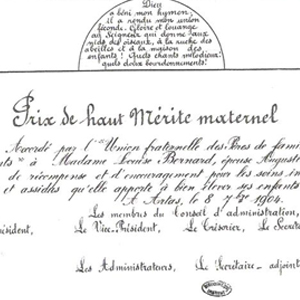 Dieu
a béni mon hymen;
il a rendu mon union
féconde. Gloire et louange
au Seigneur qui donne aux
nids des oiseaux, à la ruche des
abeilles et à la maison des
enfants! Quels chants mélodieux!
quels doux bourdonnements!
Prix de haut Mérite maternel
Accordé par l'"Union fraternelle des Pères de fami
nts" à Madame Louise Bernard, épouse Auguste
de récompense et d'encouragement pour les soins in
et assidus qu'elle apporte à bien élever ses enfants
A Artas, le 8 7bre 1904.
Les membres du Conseil d'administration,
résident, Le Vice-Président, Le Trésorier, Le Secrét
Les Administrateurs, Le Secrétaire-adjoint